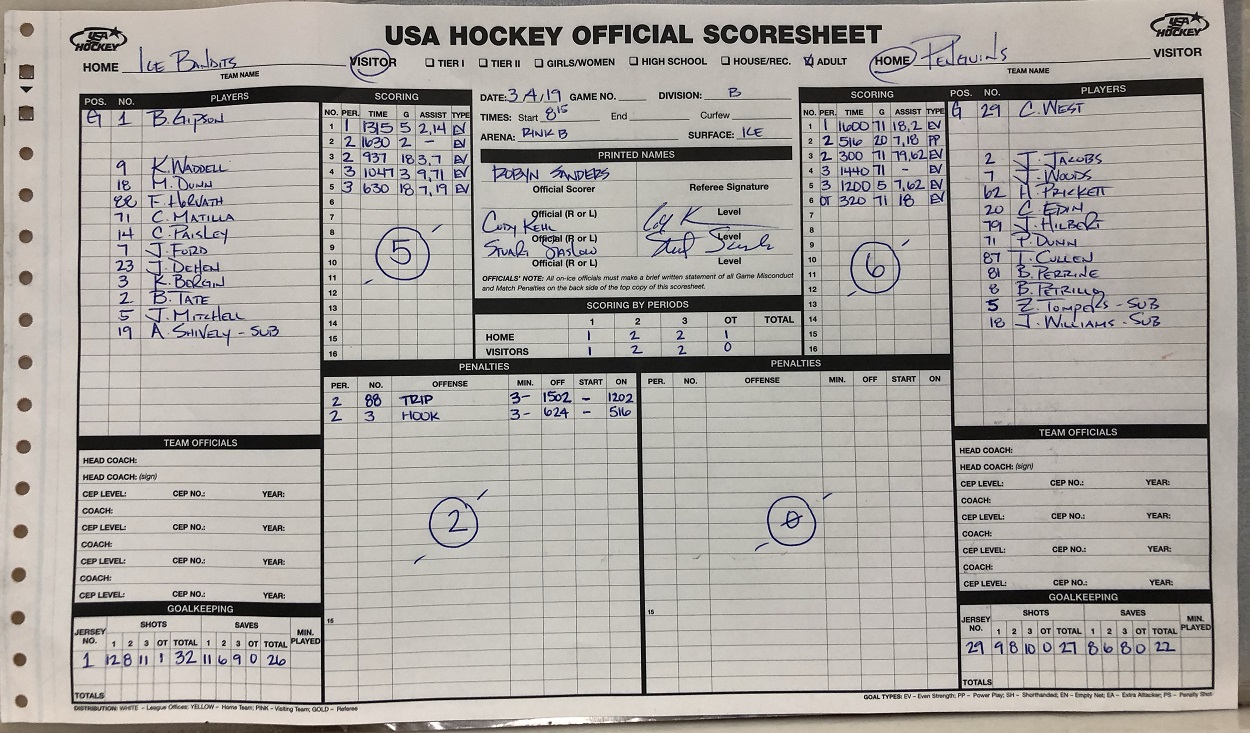 USA HOCKEY OFFICIAL SCORESHEET
USA HOCKEY
USA HOCKEY
HOME Ice Bandits VISITOR ☐ TIER I ☐ TIER II ☐ GIRLS/WOMEN ☐ HIGH SCHOOL ☐ HOUSE/REC. ☑ ADULT HOME Penguins VISITOR
TEAM NAME TEAM NAME
POS. NO. PLAYERS
G 1 B. Gipson
9 K. Waddell
18 M. Dunn
88 F. Horvath
71 C. Matilla
14 C. Paisley
7 J. Ford
23 J. Dehen
3 K. Borgin
2 B. Tate
5 J. Mitchell
19 A. Shively - SUB
SCORING
NO. PER. TIME G ASSIST TYPE
1 1 1315 5 2,14 EV
2 2 1630 2 - EV
3 2 937 18 3,7 EV
4 3 1047 3 9,71 EV
5 3 630 18 7,19 EV
6
7
8
9
10
11
12
13
14
15
16
5
DATE: 3/4/19 GAME NO. DIVISION: B
TIMES: Start 8:15 End Curfew
ARENA: RINK B SURFACE: ICE
PRINTED NAMES
Robyn Sanders
Official Scorer Referee Signature
Official (R or L) Level
Cody Kehl
Official (R or L) Level
Stuart Saslow
Official (R or L) Level
OFFICIALS' NOTE: All on-ice officials must make a brief written statement of all Game Misconduct
and Match Penalties on the back side of the top copy of this scoresheet.
SCORING BY PERIODS
1 2 3 OT TOTAL
HOME 1 2 2 1
VISITORS 1 2 2 0
SCORING
NO. PER. TIME G ASSIST TYPE
1 1 1600 71 18,2 EV
2 2 516 20 7,18 PP
3 2 300 71 79,62 EV
4 3 1440 71 - EV
5 3 1200 5 7,62 EV
6 OT 320 71 18 EV
7
8
9
10
11
12
13
14
15
16
6
POS. NO. PLAYERS
G 29 C. West
2 J. Jacobs
7 J. Woods
62 H. Prickett
20 C. Edin
79 J. Hilbert
71 P. Dunn
87 T. Cullen
81 B. Perrine
8 B. Petrillo
5 Z. Tompers - SUB
18 J. Williams - SUB
PENALTIES
PER. NO. OFFENSE MIN. OFF START ON
2 88 TRIP 3- 1502 - 1202
2 3 HOOK 3- 624 - 516
2
15
PENALTIES
PER. NO. OFFENSE MIN. OFF START ON
0
15
TEAM OFFICIALS
HEAD COACH:
HEAD COACH: (sign)
CEP LEVEL: CEP NO.: YEAR:
COACH:
CEP LEVEL: CEP NO.: YEAR:
COACH:
CEP LEVEL: CEP NO.: YEAR:
COACH:
CEP LEVEL: CEP NO.: YEAR:
GOALKEEPING
JERSEY NO. SHOTS SAVES MIN. PLAYED
1 2 3 OT TOTAL 1 2 3 OT TOTAL
1 12 8 11 1 32 11 6 9 0 26
TOTALS
TEAM OFFICIALS
HEAD COACH:
HEAD COACH: (sign)
CEP LEVEL: CEP NO.: YEAR:
COACH:
CEP LEVEL: CEP NO.: YEAR:
COACH:
CEP LEVEL: CEP NO.: YEAR:
COACH:
CEP LEVEL: CEP NO.: YEAR:
GOALKEEPING
JERSEY NO. SHOTS SAVES MIN. PLAYED
1 2 3 OT TOTAL 1 2 3 OT TOTAL
29 9 8 10 0 27 8 6 8 0 22
TOTALS
DISTRIBUTION: WHITE - League Offices; YELLOW - Home Team; PINK - Visiting Team; GOLD - Referee
GOAL TYPES: EV - Even Strength; PP - Power Play; SH - Shorthanded; EN - Empty Net; EA - Extra Attacker; PS - Penalty Shot